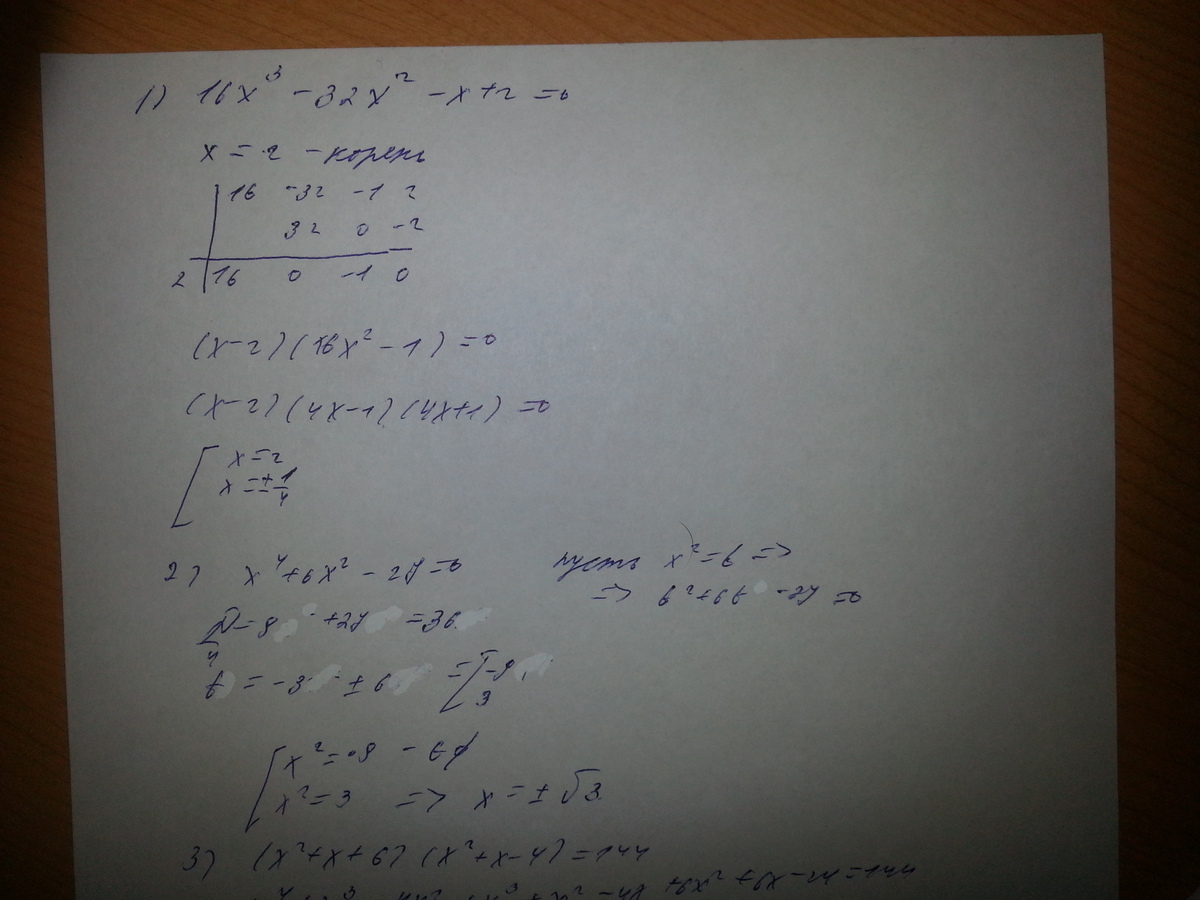 1) 16x³ - 32x² - x + 2 = 0
x = 2 - корень
16 -32 -1 2
32 0 -2
2 16 0 -1 0
(x-2)(16x² - 1) = 0
(x-2)(4x-1)(4x+1) = 0
x = 2
x = ± 1/4
2) x⁴ + 6x² - 27 = 0 пусть x² = t =>
=> t² + 6t - 27 = 0
D/4 = 9 + 27 = 36
t = -3 ± 6 = [ -9
3
x² = -9 - ∈ ∅
x² = 3 => x = ± √3
3) (x² + x + 6)(x² + x - 4) = 144
+ 6x² + 6x - 24 = 144